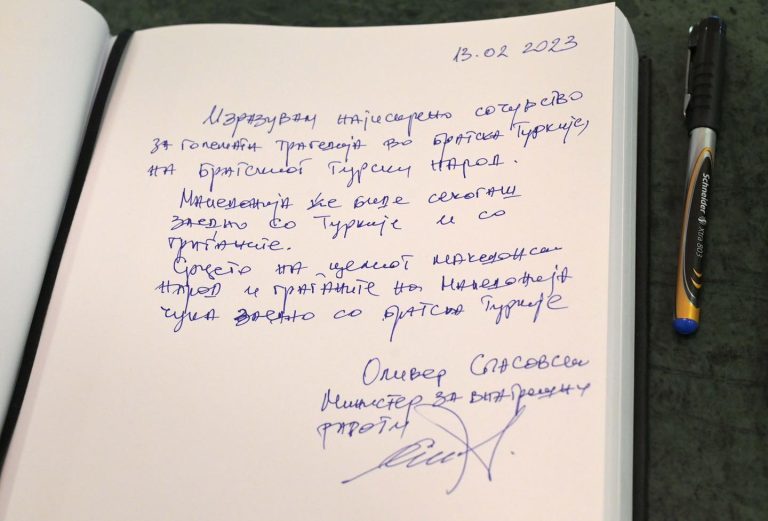 13.02 2023
Изразувам најискрено сочувство
за големата трагедија во братска Туркије,
на братскиот Турски народ.
Македонија ќе биде секогаш
заедно со Туркије и со
граѓаните.
Срцето на целиот македонски
народ и граѓаните на Македонија
чука заедно со братска Туркије
Оливер Спасовски
Министер за внатрешни
работи
Schneider Xtra 805